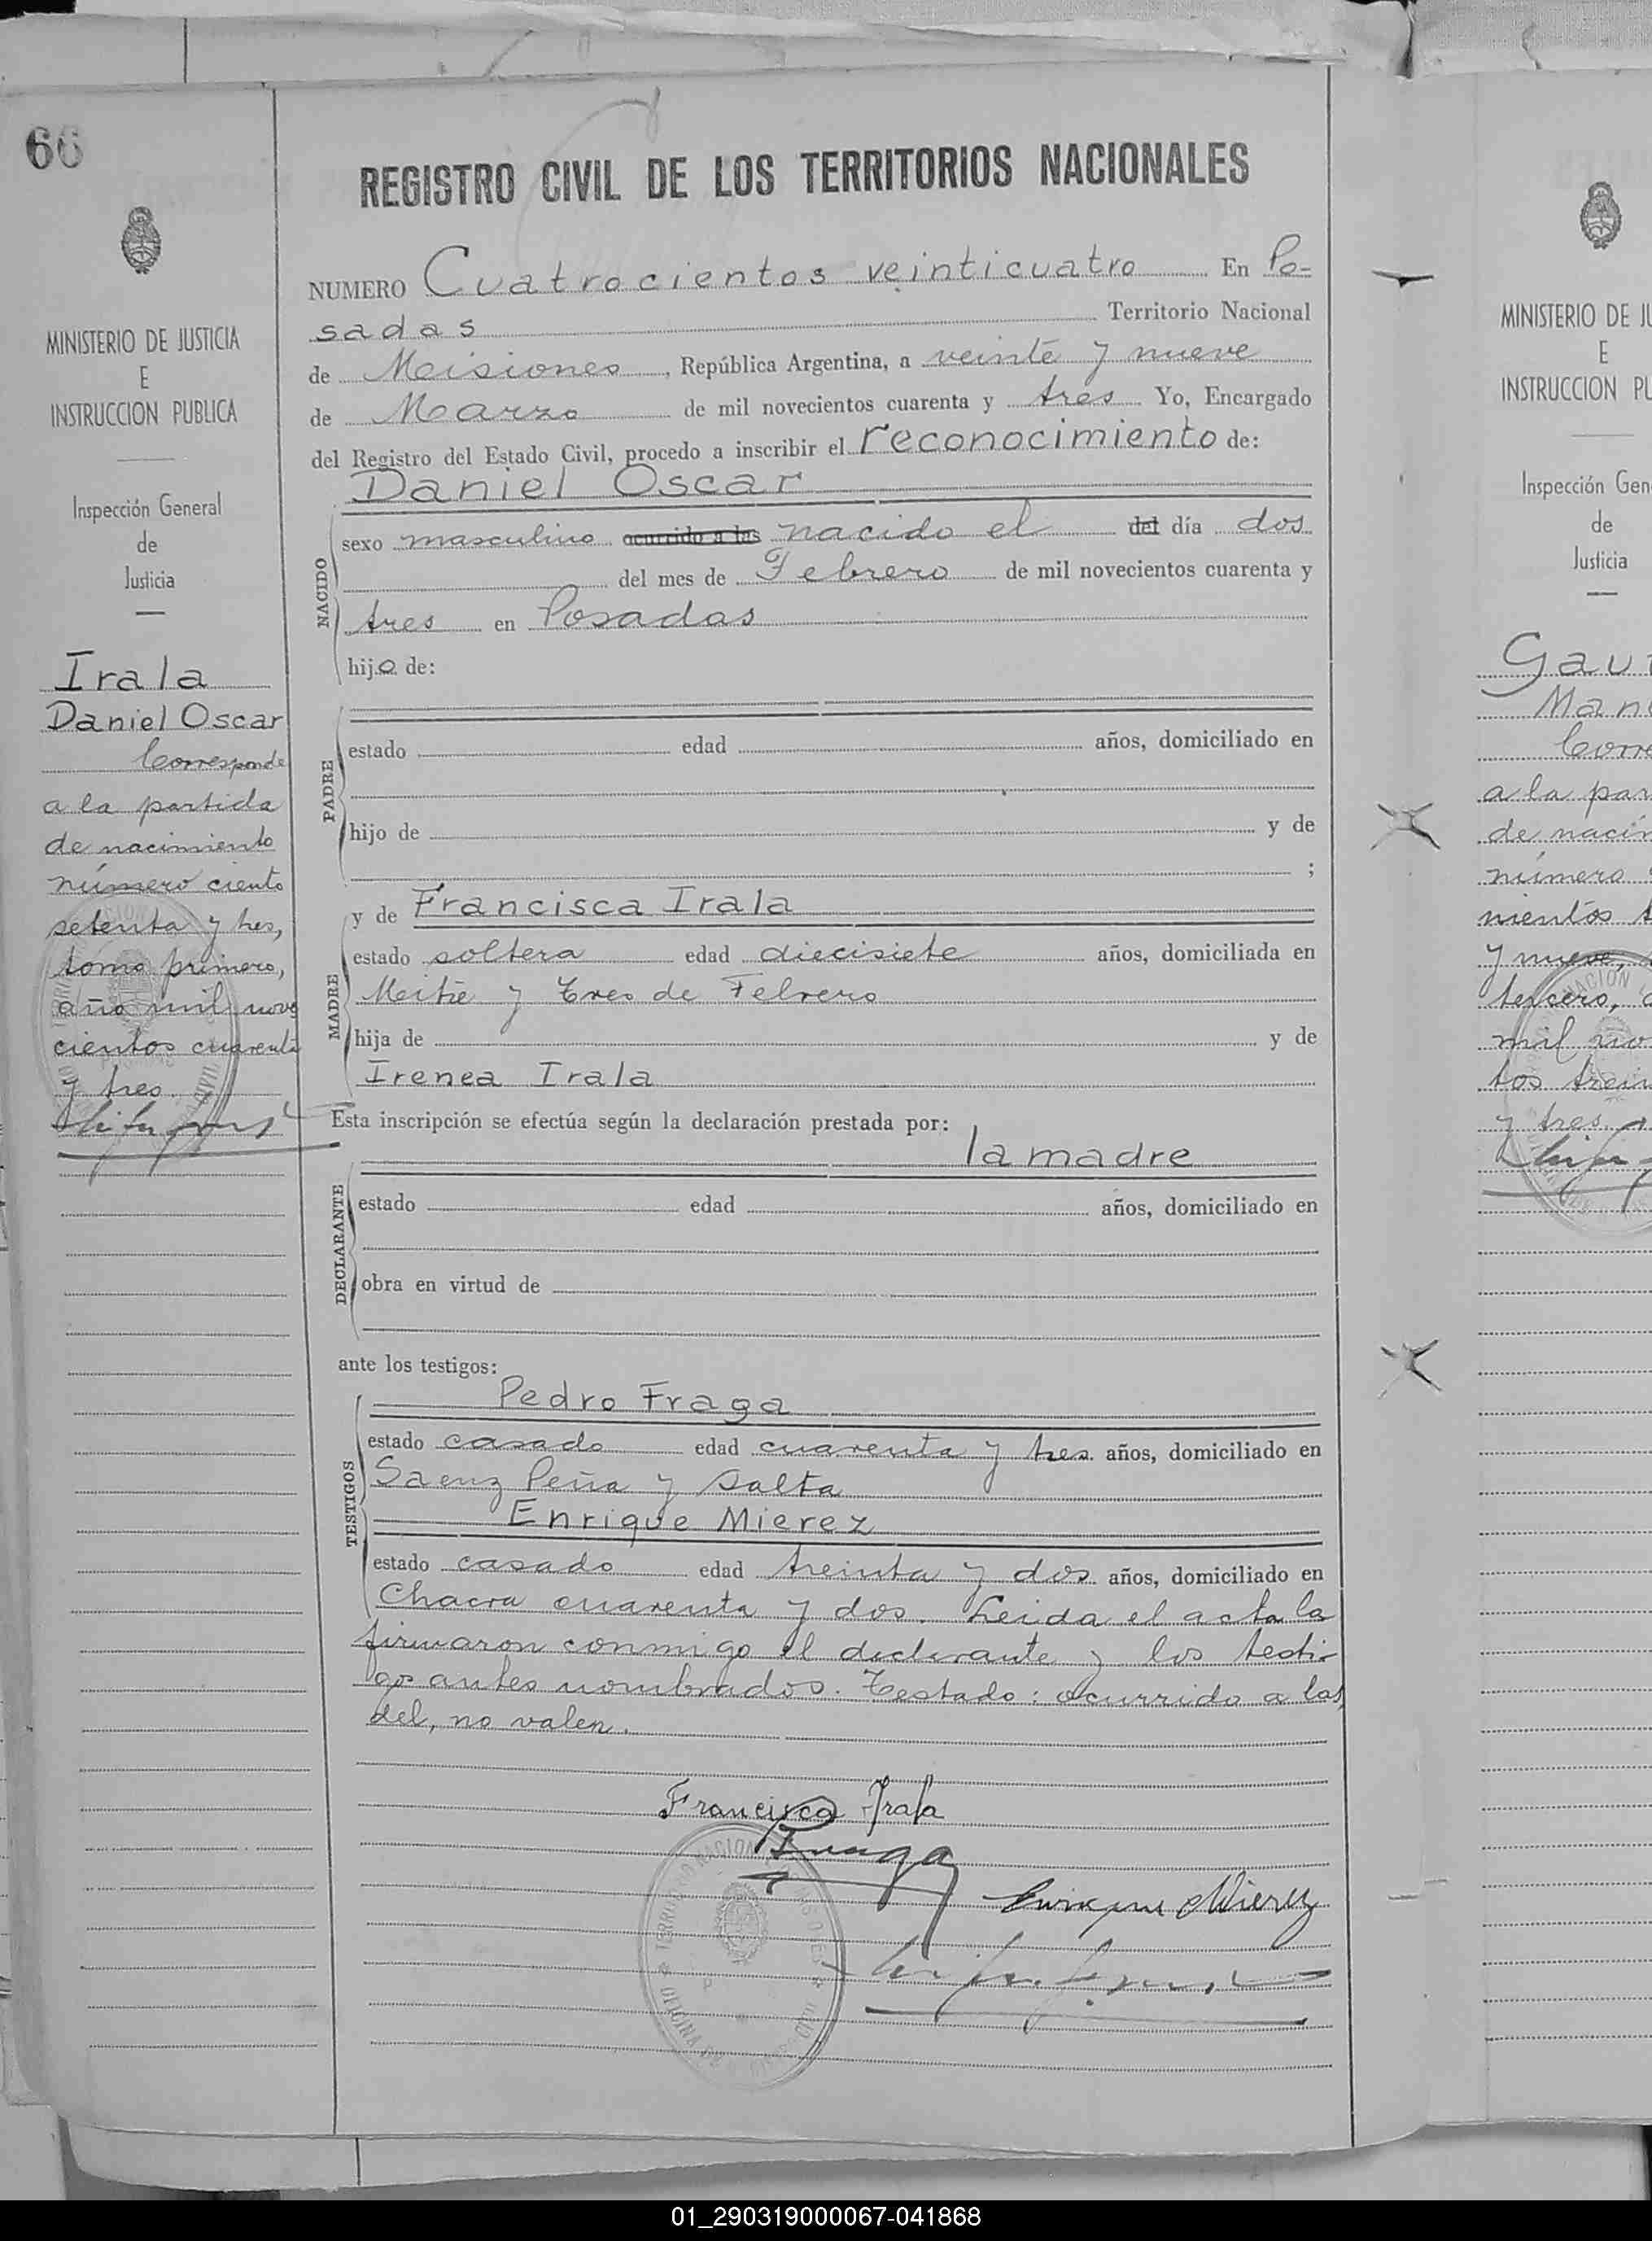 66
MINISTERIO DE JUSTICIA
E
INSTRUCCION PUBLICA
Inspección General
de
Justicia
Irala
Daniel Oscar
Corresponde
a la partida
de nacimiento
número ciento
setenta y tres,
tomo primero,
año mil nove
cientos cuarenta
y tres.
REGISTRO CIVIL DE LOS TERRITORIOS NACIONALES
NUMERO Cuatrocientos veinticuatro En Po-
sadas Territorio Nacional
de Misiones, República Argentina, a veinte y nueve
de Marzo de mil novecientos cuarenta y tres Yo, Encargado
del Registro del Estado Civil, procedo a inscribir el reconocimiento de:
Daniel Oscar
NACIDO
sexo masculino ocurrido a las nacido el del día dos
del mes de Febrero de mil novecientos cuarenta y
tres en Posadas
hijo de:
PADRE
estado edad años, domiciliado en
hijo de y de
;
MADRE
y de Francisca Irala
estado soltera edad diecisiete años, domiciliada en
Mitre y Tres de Febrero
hija de y de
Irenea Irala
Esta inscripción se efectúa según la declaración prestada por:
la madre
DECLARANTE
estado edad años, domiciliado en
obra en virtud de
ante los testigos:
TESTIGOS
Pedro Fraga
estado casado edad cuarenta y tres años, domiciliado en
Saenz Peña y Salta
Enrique Mierez
estado casado edad treinta y dos años, domiciliado en
Chacra cuarenta y dos. Leida el acta la
firmaron conmigo el declarante y los testi-
gos antes nombrados. Testado: ocurrido a las
del, no valen.
Francisca Irala
Fraga
Enrique Mierez
MINISTERIO DE JU
E
INSTRUCCION PU
Inspección Gen
de
Justicia
Gau
Man
Corre
a la par
de nacim
número
nientos t
y nueve,
tercero, a
mil no
tos trein
y tres.
01_290319000067-041868